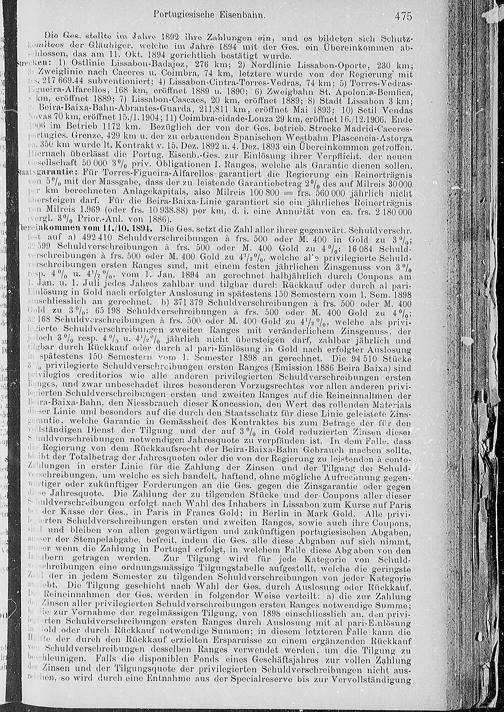 Portugiesische Eisenbahn. 475
Die Ges. stellte im Jahre 1892 ihre Zahlungen ein, und es bildeten sich Schutz-
komitees der Gläubiger, welche im Jahre 1894 mit der Ges. ein Übereinkommen ab-
schlossen, das am 11. Okt. 1894 gerichtlich bestätigt wurde.
Strecken: 1) Ostlinie Lissabon-Badajez, 276 km; 2) Nordlinie Lissabon-Oporte, 230 km;
Zweiglinie nach Caceres u. Coimbra, 74 km, letztere wurde von der Regierung mit
217 669.44 subventioniert; 4) Lissabon-Cintra-Torres-Vedras, 74 km; 5) Torres-Vedras-
Figueira-Alfarellos, 168 km, eröffnet 1889 u. 1890; 6) Zweigbahn St. Apolonia-Bemfica,
km, eröffnet 1889; 7) Lissabon-Cascaes, 20 km, eröffnet 1889; 8) Stadt Lissabon 3 km;
Beira-Baixa-Bahn-Abrantes-Guarda, 211,811 km, eröffnet Mai 1893; 10) Setil Vendas
Novas 70 km, eröffnet 15./1. 1904; 11) Coimbra-cidade-Louza 29 km, eröffnet 16./12. 1906. Ende
1906 im Betrieb 1172 km. Bezüglich der von der Ges. betrieb. Strecke Madrid-Caceres-
portugies. Grenze, 429 km u. der zu erbauenden Spanischen Westbahn Plascencia-Astorga
ca. 350 km wurde lt. Kontrakt v. 15. Dez. 1892 u. 4. Dez. 1893 ein Übereinkommen getroffen.
Hiernach überlässt die Portug. Eisenb.-Ges. zur Einlösung ihrer Verpflicht. der neuen
Gesellschaft 50 000 3% priv. Obligationen I. Ranges, welche als Garantie dienen sollen.
Staatsgarantie: Für Torres-Figueira-Alfarellos garantiert die Regierung ein Reinerträgnis
von 5%, mit der Massgabe, dass der zu leistende Garantiebetrag 2% des auf Milreis 30 000
per km berechneten Anlagekapitals, also Milreis 100 800 = frs. 560 000 jährlich nicht
übersteigen darf. Für die Beira-Baixa-Linie garantiert sie ein jährliches Reinerträgnis
von Milreis 1.969 (oder frs. 10 938.88) per km, d. i. eine Annuität von ca. frs. 2 180 000
(vergl. 3% Prior.-Anl. von 1886).
Übereinkommen vom 11./10. 1894. Die Ges. setzt die Zahl aller ihrer gegenwärt. Schuldverschr.
fest auf a) 492 410 Schuldverschreibungen à frs. 500 oder M. 400 in Gold zu 3%;
599 Schuldverschreibungen à frs. 500 oder M. 400 Gold zu 4%; 16 084 Schuld-
verschreibungen à frs. 500 oder M. 400 Gold zu 4½%, welche als privilegierte Schuld-
verschreibungen ersten Ranges sind, mit einem festen jährlichen Zinsgenuss von 3%
resp. 4% u. 4½%, vom 1. Jan. 1894 an gerechnet halbjährlich durch Coupons am
1. Jan. u. 1. Juli jedes Jahres zahlbar und tilgbar durch Rückkauf oder durch al pari-
Einlösung in Gold nach erfolgter Auslosung in spätestens 150 Semestern vom 1. Sem. 1898
einschliesslich an gerechnet. b) 371 379 Schuldverschreibungen à frs. 500 oder M. 400
Gold zu 3%; 65 198 Schuldverschreibungen à frs. 500 oder M. 400 Gold zu 4%;
168 Schuldverschreibungen à frs. 500 oder M. 400 Gold zu 4½%, welche als privi-
legierte Schuldverschreibungen zweiten Ranges mit veränderlichem Zinsgenuss, der
jedoch 3% resp. 4% u. 4½% jährlich nicht übersteigen darf, zahlbar jährlich und
tilgbar durch Rückkauf oder durch al pari-Einlösung in Gold nach erfolgter Auslosung
spätestens 150 Semestern vom 1. Semester 1898 an gerechnet. Die 94 510 Stücke
privilegierte Schuldverschreibungen ersten Ranges (Emission 1886 Beira Baixa) sind
privilegios creditorios wie alle anderen privilegierten Schuldverschreibungen ersten
Ranges, und zwar unbeschadet ihres besonderen Vorzugsrechtes vor allen anderen privi-
legierten Schuldverschreibungen ersten und zweiten Ranges auf die Reineinnahmen der
Beira-Baixa-Bahn, den Niessbrauch dieser Koncession, den Wert des rollenden Materials
dieser Linie und besonders auf die durch den Staatsschatz für diese Linie geleistete Zins-
garantie, welche Garantie in Gemässheit des Kontraktes bis zum Betrage der für den
vollständigen Dienst der Tilgung und der auf 3% in Gold reduzierten Zinsen dieser
Schuldverschreibungen notwendigen Jahresquote zu verpfänden ist. In dem Falle, dass
Regierung von dem Rückkaufsrecht der Beira-Baixa-Bahn Gebrauch machen sollte,
der Totalbetrag der Jahresquoten oder die von der Regierung zu leistenden à conto-
Zahlungen in erster Linie für die Zahlung der Zinsen und der Tilgung der Schuld-
verschreibungen, um welche es sich handelt, haftend, ohne mögliche Aufrechnung gegen-
wärtiger oder zukünftiger Forderungen an die Ges. gegen die Zinsgarantie oder gegen
Jahresquote. Die Zahlung der zu tilgenden Stücke und der Coupons aller dieser
Schuldverschreibungen erfolgt nach Wahl des Inhabers in Lissabon zum Kurse auf Paris
der Kasse der Ges., in Paris in Francs Gold; in Berlin in Mark Gold. Alle privi-
legierten Schuldverschreibungen ersten und zweiten Ranges, sowie auch ihre Coupons,
und bleiben von allen gegenwärtigen und zukünftigen portugiesischen Abgaben,
ausser der Stempelabgabe, befreit, indem die Ges. alle diese Abgaben auf sich nimmt,
ausser wenn die Zahlung in Portugal erfolgt, in welchem Falle diese Abgaben von den
Inhabern getragen werden. Zur Tilgung wird für jede Kategorie von Schuld-
verschreibungen eine ordnungsmässige Tilgungstabelle aufgestellt, welche die geringste
Zahl der in jedem Semester zu tilgenden Schuldverschreibungen von jeder Kategorie
Die Tilgung geschieht nach Wahl der Ges. durch Auslosung oder Rückkauf.
Reineinnahmen der Ges. werden in folgender Weise verteilt: a) die zur Zahlung
Zinsen aller privilegierten Schuldverschreibungen ersten Ranges notwendige Summe;
zur Vornahme der regelmässigen Tilgung, von 1898 einschliesslich an, den privi-
legierten Schuldverschreibungen ersten Ranges durch Auslosung mit al pari-Einlösung
Gold oder durch Rückkauf notwendige Summen; in diesem letzteren Falle kann die
Hälfte der durch den Rückkauf erzielten Ersparnisse zu einem ergänzenden Rückkauf
von Schuldverschreibungen desselben Ranges verwendet werden, um die Tilgung zu
beschleunigen. Falls die disponiblen Fonds eines Geschäftsjahres zur vollen Zahlung
der Zinsen und der Tilgungsquote der privilegierten Schuldverschreibungen nicht aus-
reichen, so wird durch eine Entnahme aus der Specialreserve bis zur Vervollständigung